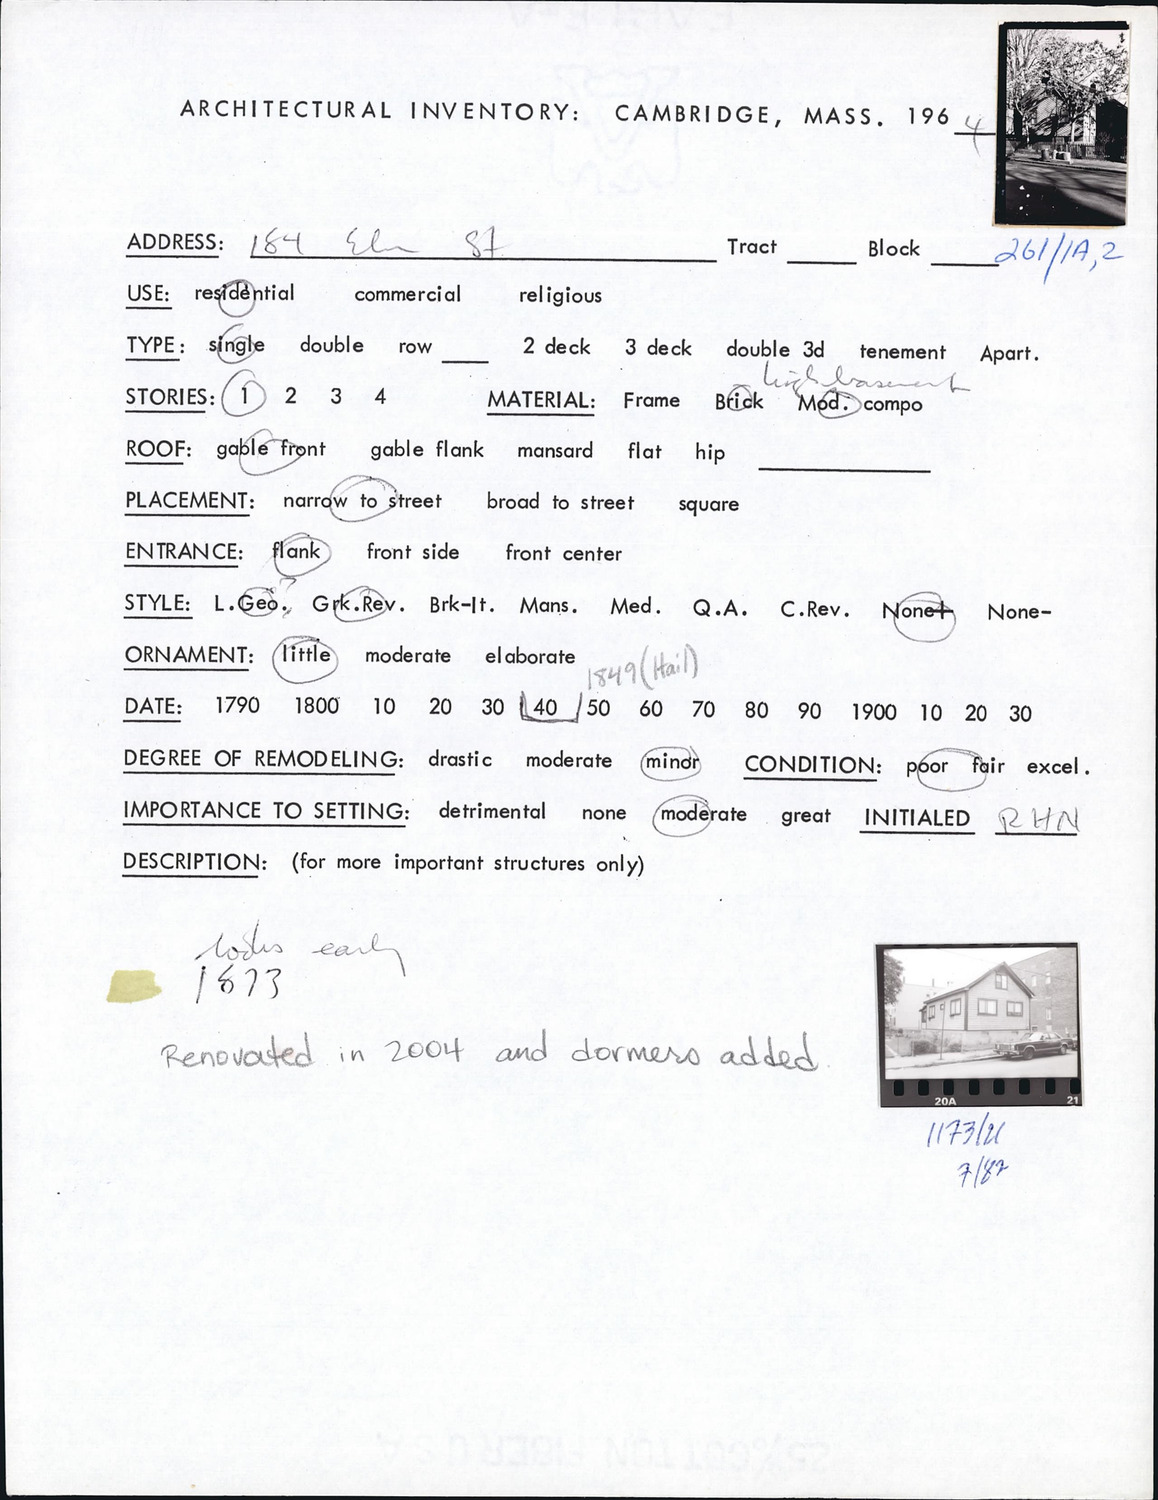 ARCHITECTURAL INVENTORY: CAMBRIDGE, MASS. 196 4
ADDRESS: 184 Elm St Tract Block 261/1A,2
USE: residential commercial religious
TYPE: single double row 2 deck 3 deck double 3d tenement Apart.
high basement
STORIES: 1 2 3 4 MATERIAL: Frame Brick Mod. compo
ROOF: gable front gable flank mansard flat hip
PLACEMENT: narrow to street broad to street square
ENTRANCE: flank front side front center
?
STYLE: L.Geo. Grk.Rev. Brk-It. Mans. Med. Q.A. C.Rev. None+ None-
ORNAMENT: little moderate elaborate
1849 (Hail)
DATE: 1790 1800 10 20 30 40 50 60 70 80 90 1900 10 20 30
DEGREE OF REMODELING: drastic moderate minor CONDITION: poor fair excel.
IMPORTANCE TO SETTING: detrimental none moderate great INITIALED RHN
DESCRIPTION: (for more important structures only)
looks early
1873
Renovated in 2004 and dormers added.
20A 21
1173/21
7/82